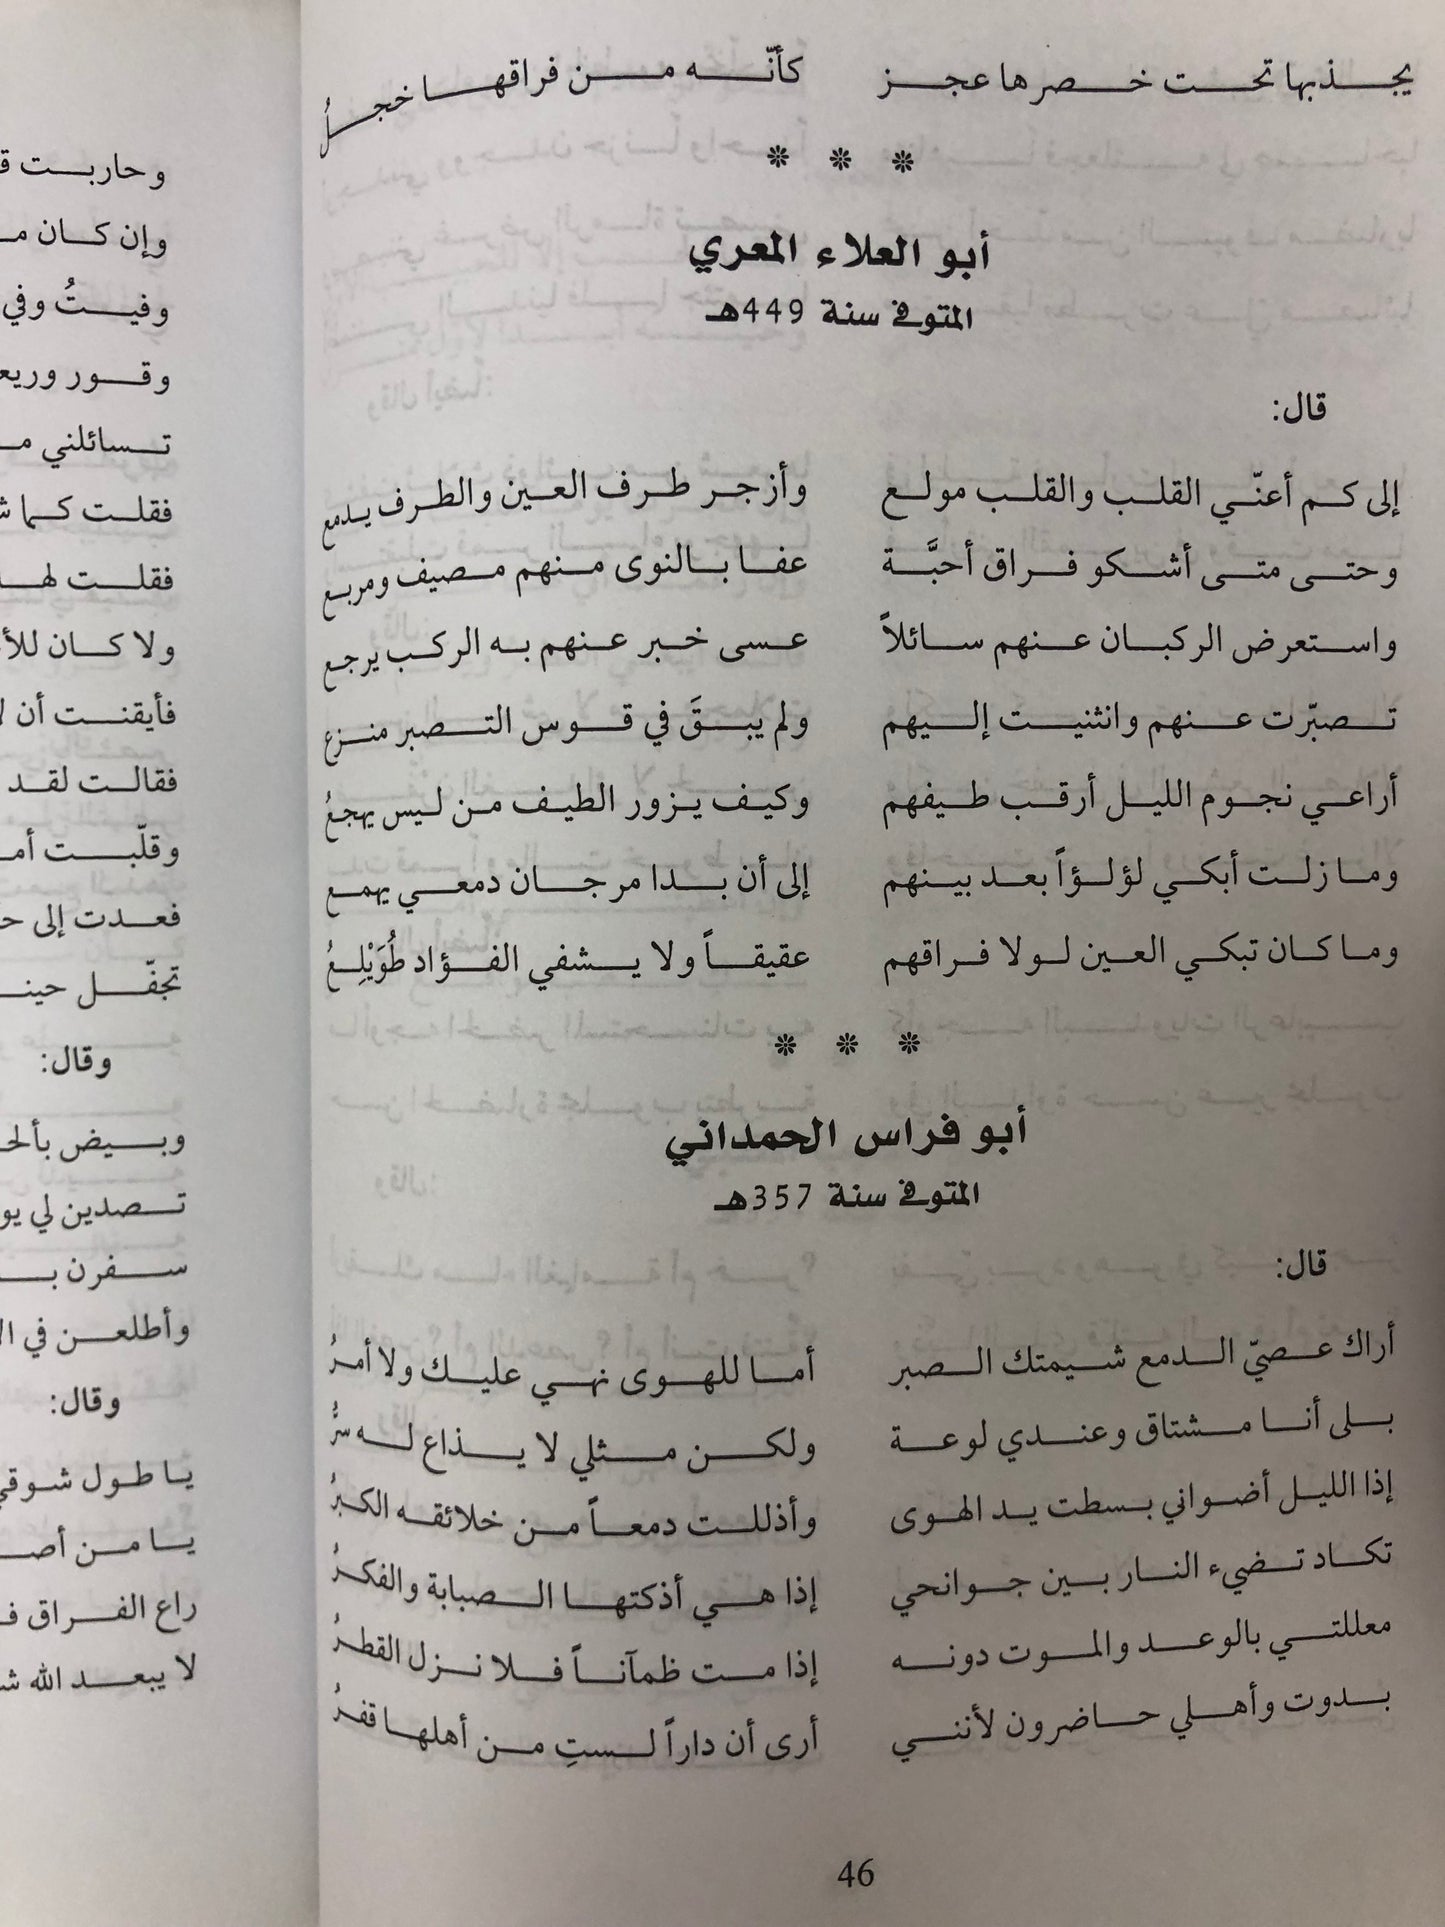 يجذبها تحت خصرها عجز كأنّه من فراقها خجلُ
* * *
أبو العلاء المعري
المتوفى سنة 449هـ
قال:
إلى كم أعنّي القلب والقلب مولع وأزجر طرف العين والطرف يدمع
وحتى متى أشكو فراق أحبَّة عفا بالنوى منهم مصيف ومربع
واستعرض الركبان عنهم سائلاً عسى خبر عنهم به الركب يرجع
تصبّرت عنهم وانثنيت إليهم ولم يبقَ في قوس التصبر منزع
أراعي نجوم الليل أرقب طيفهم وكيف يزور الطيف من ليس يهجعُ
وما زلت أبكي لؤلؤاً بعد بينهم إلى أن بدا مرجان دمعي يهمع
وما كان تبكي العين لولا فراقهم عقيقاً ولا يشفي الفؤاد طُوَيْلِعُ
* * *
أبو فراس الحمداني
المتوفى سنة 357هـ
قال:
أراك عصيّ الدمع شيمتك الصبر أما للهوى نهي عليك ولا أمرُ
بلى أنا مشتاق وعندي لوعة ولكن مثلي لا يذاع له سرُّ
إذا الليل أضواني بسطت يد الهوى وأذللت دمعاً من خلائقه الكبرُ
تكاد تضيء النار بين جوانحي إذا هي أذكتها الصبابة والفكرُ
معللتي بالوعد والموت دونه إذا مت ظمآناً فلا نزل القطرُ
بدوت وأهلي حاضرون لأنني أرى أن داراً لستِ من أهلها قفرُ
46
وحاربت
وإن كان
وفيتُ وفي
وقور
تسائلني
فقلت كما
فقلت
ولا كان
فأيقنت أن
فقالت لقد
وقلّبت
فعدت إلى
تجفّل
وقال:
وبيض
تصدين لي
سفرن
وأطلعن في
وقال:
يا طول
يا من
راع الفراق
لا يبعد الله